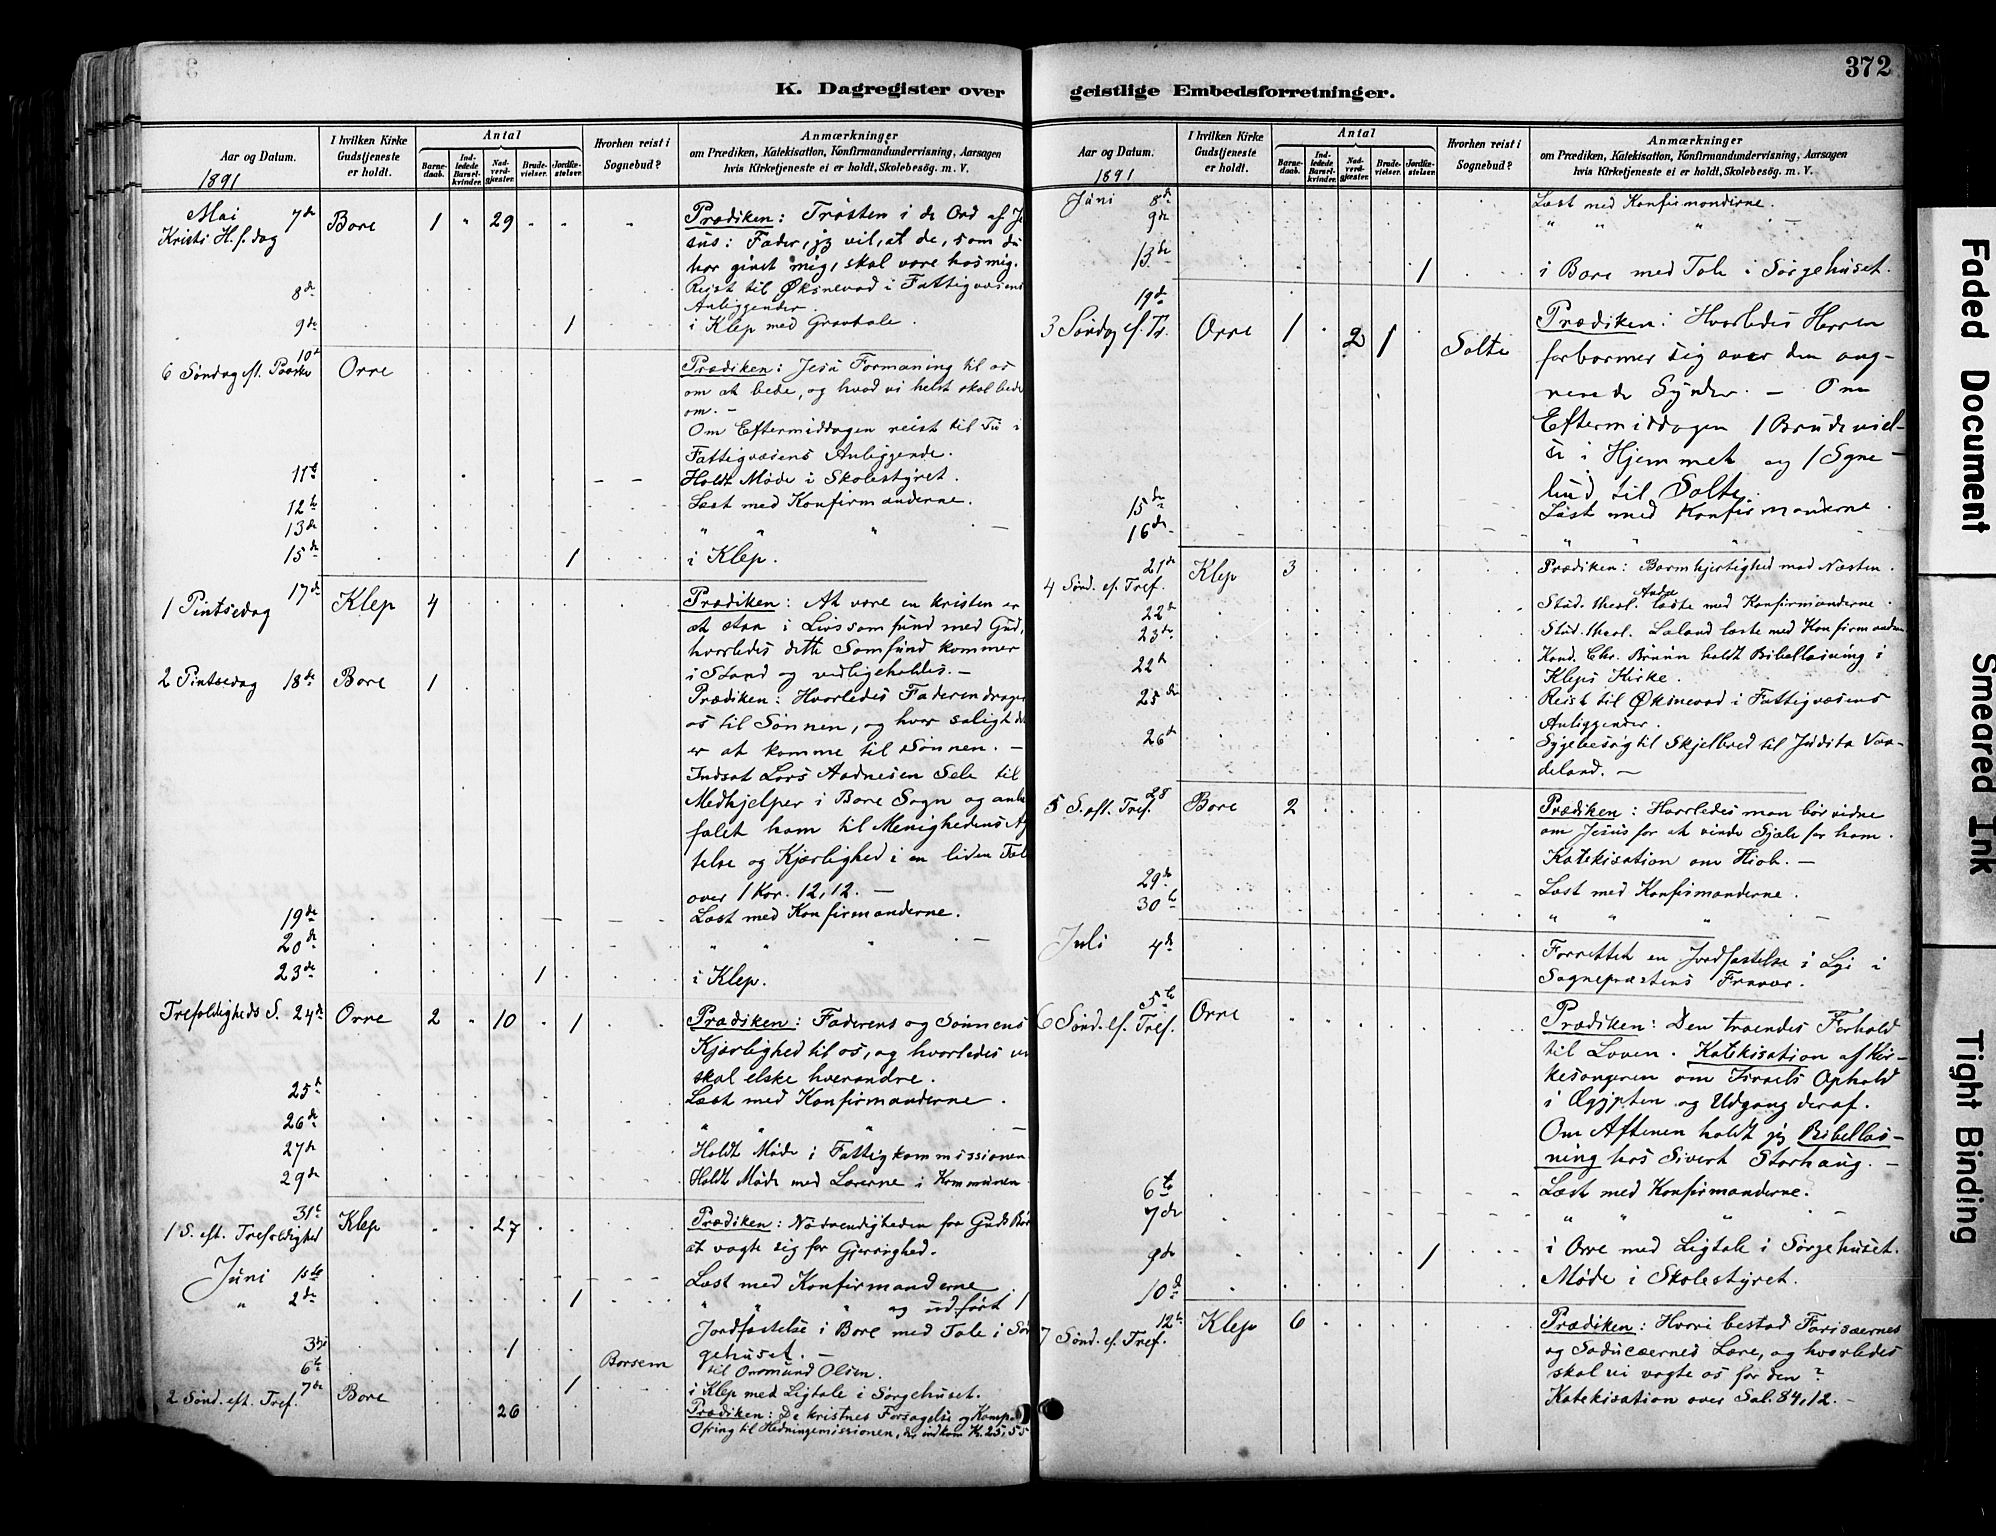 K. Dagregister over
Aar og Datum.
1891
I hvilken Kirke Gudstjeneste er holdt.
Antal
Barnedaab.
Indledede Barselkvinder.
Nadverdgjæster.
Brudevielser.
Jordfæstelser.
Hvorhen reist i Sognebud?
Anmærkninger
om Prædiken, Katekisation, Konfirmandundervisning, Aarsagen
hvis Kirketjeneste ei er holdt, Skolebesøg. m. V.
Mai 7de Bore 1 " 29 Prædiken: Trøsten i de Ord af Je
Kristi H.f.dag sus: Fader, jeg vil, at de, som du
har givet mig, skal være hos mig.
8de Reist til Øksnevad i Fattigvæsens
Anliggender.
9de 1 i Klep med Gravtale.
10de
6 Søndag eft. Paaske Orre Prædiken: Jesu Formaning til os
om at bede, og hvad vi helst skal bede
om. —
Om Eftermiddagen reist til Tu i
Fattigvæsens Anliggende.
11te Holdt Møde i Skolestyret.
12te Læst med Konfirmanderne.
13de " " " —
15de 1 i Klep.
17de
1 Pintsedag Klep 4 Prædiken: At være en kristen er
at staa i Livssamfund med Gud,
hvorledes dette Samfund kommer
i Stand og vedligeholdes. —
2 Pintsedag 18de Bore 1 Prædiken: Hvorledes Faderen drager
os til Sønnen, og hvor saligt det
er at komme til Sønnen. —
Indsat Lars Aadnesen Sele til
Medhjelper i Bore Sogn og anbe
falet ham til Menighedens Ag
telse og Kjærlighed i en liden Tale
over 1 Kor. 12, 12. —
19de Læst med Konfirmanderne.
20de " " " —
23de 1 i Klep.
Trefoldigheds S. 24de Orre 2 " 10 1 Prædiken: Faderens og Sønnens
Kjærlighed til os, og hvorledes vi
skal elske hverandre.
25de Læst med Konfirmanderne.
26de " " —
27de Holdt Møde i Fattigkommissionen
29de Holdt Møde med Lærerne i Kommunen
31te
1 S. eft. Trefoldighed Klep 27 Prædiken: Nødvendigheden for Guds Børn
at vogte sig for Gjerrighed.
Juni 1ste Læst med Konfirmanderne
" 2de 1 " " " og udført 1
Jordfæstelse i Bore med Tale i Sør
3die 1 gehuset. —
6te Borsem til Ommund Olsen.
7de 1 i Klep med Ligtale i Sørgehuset.
2 Sønd. eft. Tref. Bore 26 Prædiken: De kristnes Forsagelse og Kamp.
Ofring til Hedningemissionen, der indkom Kr. 25,55
geistlige Embedsforretninger.
372
Aar og Datum.
1891
I hvilken Kirke Gudstjeneste er holdt.
Antal
Barnedaab.
Indledede Barselkvinder.
Nadverdgjæster.
Brudevielser.
Jordfæstelser.
Hvorhen reist i Sognebud?
Anmærkninger
om Prædiken, Katekisation, Konfirmandundervisning, Aarsagen
hvis Kirketjeneste ei er holdt, Skolebesøg. m. V.
Juni 8de Læst med Konfirmanderne.
9de " " " —
13de 1 i Bore med Tale i Sørgehuset.
3 Søndag ef. Tr. Orre 1 2 1 Salte Prædiken: Hvorledes Herren
forbarmer sig over den ang-
rende Synder. — Om
Eftermiddagen 1 Brudeviel-
se i Hjemmet og 1 Sogne-
bud til Salte.
15de Læst med Konfirmanderne.
16de " " "
21de
4 Sønd. ef. Tref. Klep 3 Prædiken: Barmhjertighed mod Næsten.
22de Stud. theol. læste med Konfirmanderne.
23de Stud. theol. Laland læste med Konfirmanderne
22de Kand. Chr. Bruun holdt Bibellæsning i
Kleps Kirke.
25de Reist til Øksnevad i Fattigvæsens
Anliggender.
26de Sygebesøg til Skjelbred til Judita Vaa-
deland. —
28
5 S. eft. Tref. Bore 2 Prædiken: Hvorledes man bør vidne
om Jesus for at vinde Sjæle for ham.
Katekisation om Hiob. —
29de Læst med Konfirmanderne.
30te " " " —
Juli 4de Forrettet en Jordfæstelse i Lye i
Sognepræstens Fravær.
5te
6 Sønd. ef. Tref. Orre Prædiken: Den troendes Forhold
til Loven. Katekisation af Kir-
kesangeren om Israels Ophold
i Ægypten og Udgang deraf.
Om Aftenen holdt jeg Bibellæs-
ning hos Sivert Storhaug. —
6te Læst med Konfirmanderne.
7de " " " —
9de 1 i Orre med Ligtale i Sørgehuset.
10de Møde i Skolestyret.
12te
7 Sønd. ef. Tref. Klep 6 Prædiken: Hvori bestod Farisæernes
og Saducæernes Lære, og hvorledes
skal vi vogte os for den?
Katekisation over Sal. 84, 12. —
Faded Document
Smeared Ink
Tight Binding